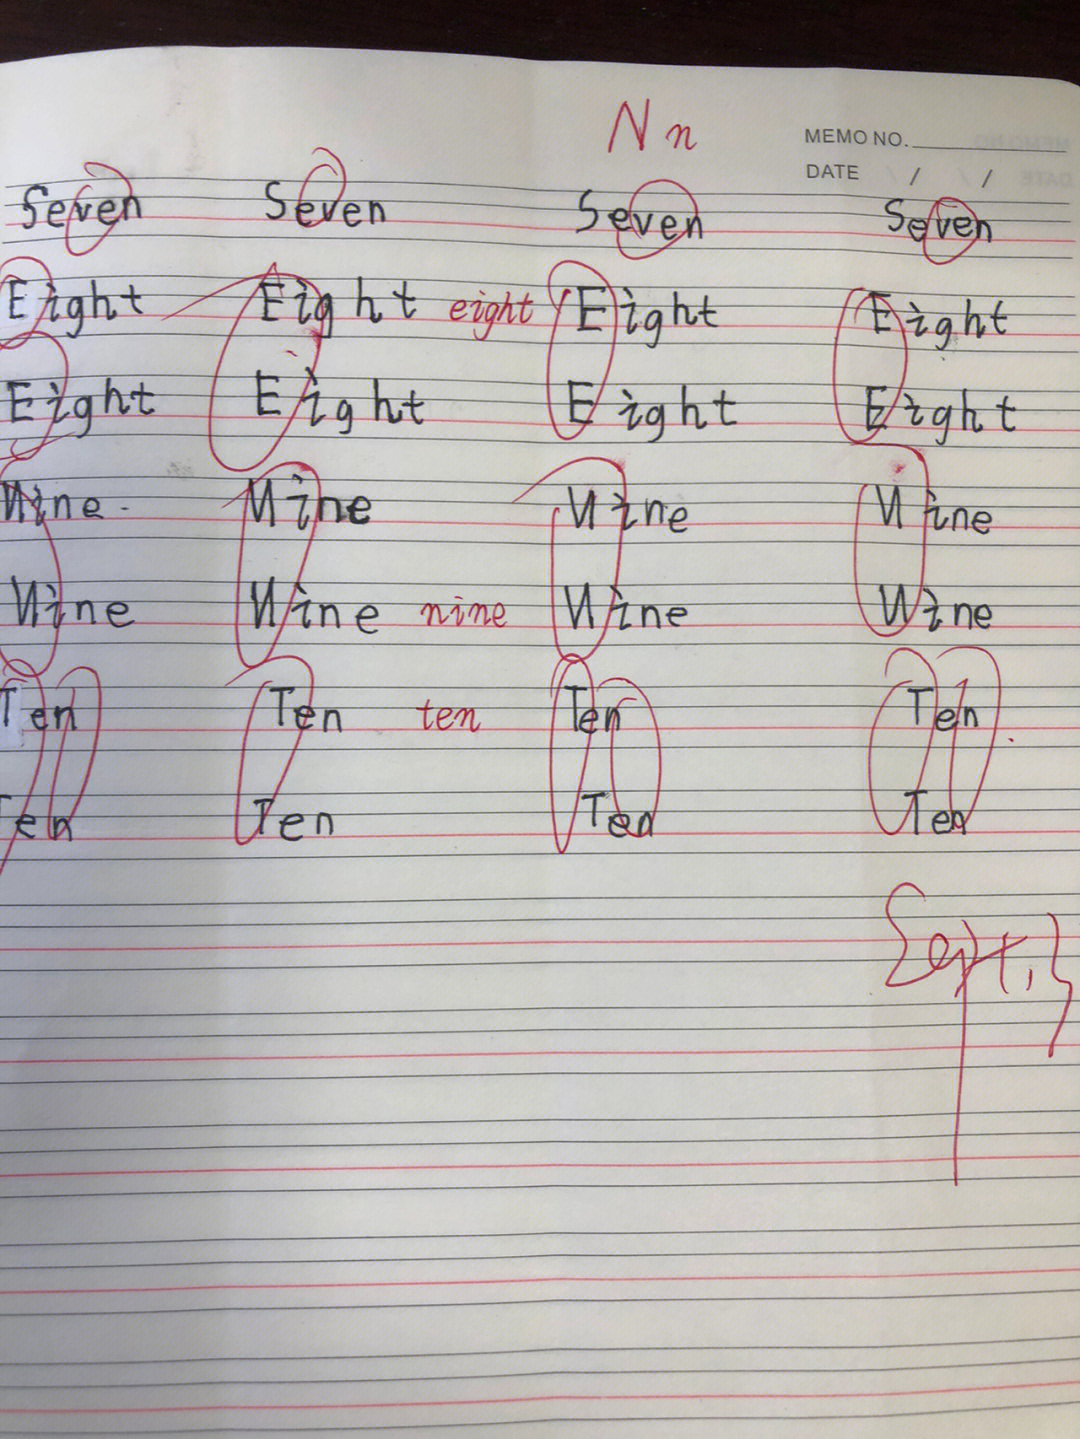 N n
MEMO NO.
DATE / /
Seven Seven Seven Seven
Eight Eight eight Eight Eight
Eight Eight Eight Eight
Nine Nine Nine Nine
Nine Nine nine Nine Nine
Ten Ten ten Ten Ten
Ten Ten Ten Ten
Sept, 3